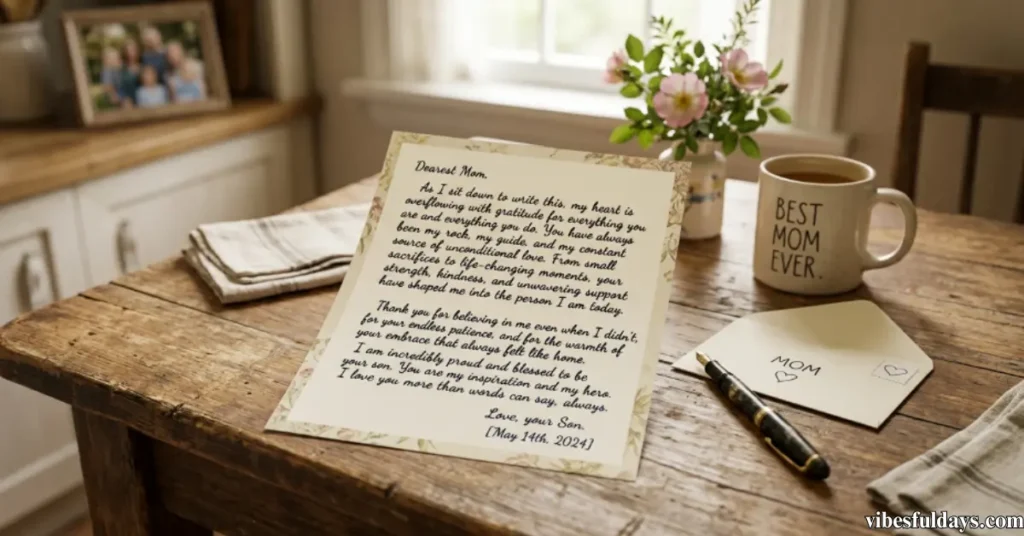 Dearest Mom,
As I sit down to write this, my heart is
overflowing with gratitude for everything you
are and everything you do. You have always
been my rock, my guide, and my constant
source of unconditional love. From small
sacrifices to life-changing moments, your
strength, kindness, and unwavering support
have shaped me into the person I am today.
Thank you for believing in me even when I didn't,
for your endless patience, and for the warmth of
your embrace that always felt like home.
I am incredibly proud and blessed to be
your son. You are my inspiration and my hero.
I love you more than words can say, always.
Love, your Son.
[May 14th, 2024]
BEST
MOM
EVER.
MOM
vibesfuldays.com